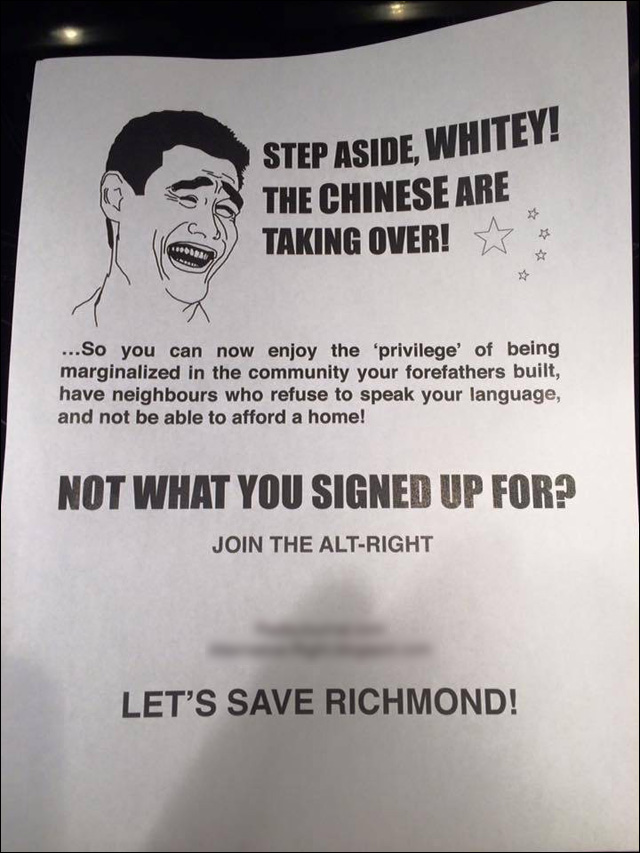 STEP ASIDE, WHITEY!
THE CHINESE ARE
TAKING OVER!
...So you can now enjoy the 'privilege' of being
marginalized in the community your forefathers built,
have neighbours who refuse to speak your language,
and not be able to afford a home!
NOT WHAT YOU SIGNED UP FOR?
JOIN THE ALT-RIGHT
LET'S SAVE RICHMOND!